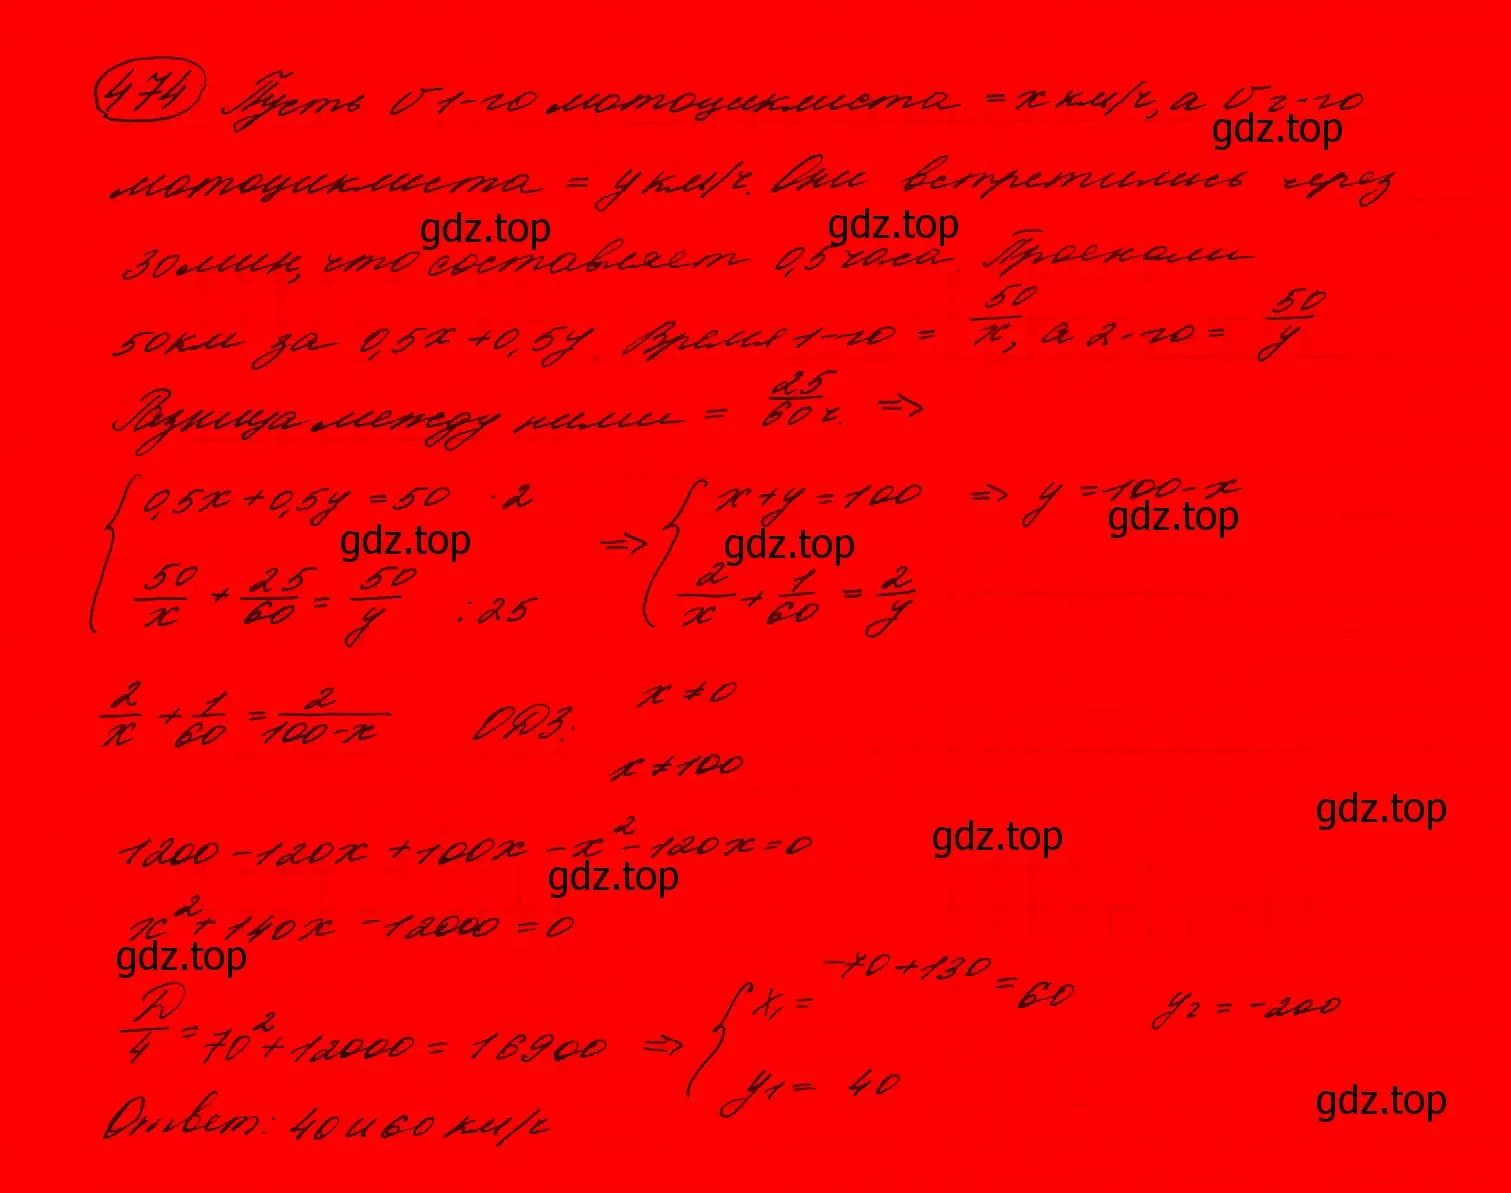 474 Пусть υ 1-го мотоциклиста = x км/ч, а υ 2-го
gdz.top
мотоциклиста = y км/ч. Они встретились через
gdz.top gdz.top
30 мин, что составляет 0,5 часа. Проехали
50 км за 0,5x + 0,5y. Время 1-го = 50/x, а 2-го = 50/y
Разница между ними = 25/60 ч. =>
{ 0,5x + 0,5y = 50 · 2 => { x + y = 100 => y = 100 - x
gdz.top gdz.top gdz.top
50/x + 25/60 = 50/y : 25 2/x + 1/60 = 2/y
2/x + 1/60 = 2/(100-x) ОДЗ: x ≠ 0
x ≠ 100
gdz.top
1200 - 120x + 100x - x² - 120x = 0 gdz.top
gdz.top
x² + 140x - 12000 = 0
gdz.top
Д/4 = 70² + 12000 = 16900 => { x₁ = -70 + 130 = 60 y₂ = -200
y₁ = 40
gdz.top
Ответ: 40 и 60 км/ч